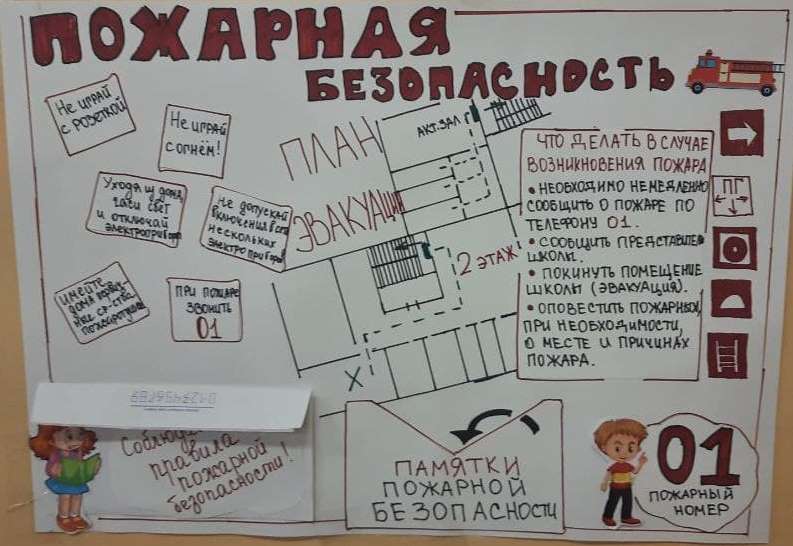 ПОЖАРНАЯ
БЕЗОПАСНОСТЬ
Не играй
с розеткой
Не играй
с огнём!
Уходя из дома,
гаси свет
и отключай
электроприборы
Не допускай
включения в сеть
нескольких
электроприборов
Имейте
дома
ные ср-ства
При пожаре
звонить
01
ПЛАН
ЭВАКУАЦИИ
АКТ.ЗАЛ
2 ЭТАЖ
X
ЧТО ДЕЛАТЬ В СЛУЧАЕ
ВОЗНИКНОВЕНИЯ ПОЖАРА
• НЕОБХОДИМО НЕМЕДЛЕННО
СООБЩИТЬ О ПОЖАРЕ ПО
ТЕЛЕФОНУ 01.
• СООБЩИТЬ
ШКОЛЫ.
• ПОКИНУТЬ ПОМЕЩЕНИЕ
ШКОЛЫ (ЭВАКУАЦИЯ).
• ОПОВЕСТИТЬ ПОЖАРНЫХ,
ПРИ НЕОБХОДИМОСТИ,
О МЕСТЕ И ПРИЧИНАХ
ПОЖАРА.
ПГ
Соблюдай
правила
пожарной
безопасности!
ПАМЯТКИ
ПОЖАРНОЙ
БЕЗОПАСНОСТИ
01
ПОЖАРНЫЙ
НОМЕР